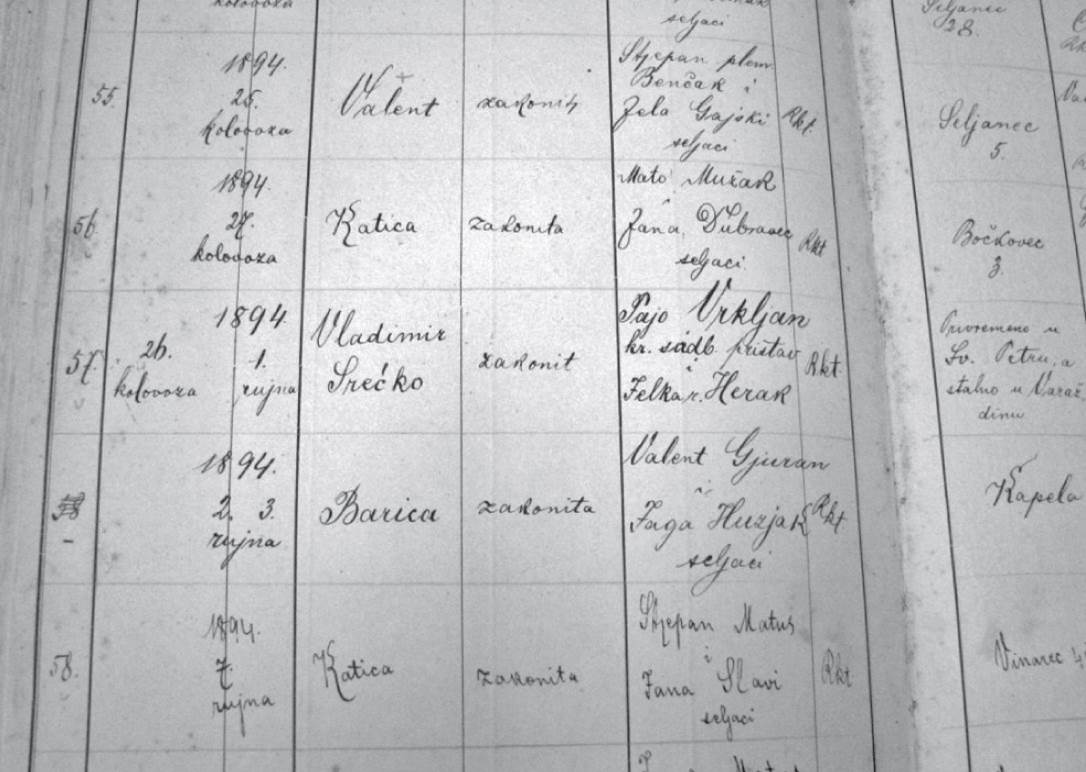 kolovoza
seljaci
Seljanec
28.
55.
1894.
25.
kolovoza
Valent
zakonit
Stjepan plem.
Benčak i
Jela Gajski
seljaci
Rkt.
Seljanec
5.
56
1894.
27.
kolovoza
Katica
zakonita
Mato Mužak
Jana Dubravec
seljaci
Rkt
Bočkovec
3.
57.
26.
kolovoza
1894
1.
rujna
Vladimir
Srećko
zakonit
Pajo Vrkljan
kr. sudb. pristav
i
Felka r. Herak
Rkt.
Privremeno u
Sv. Petru, a
stalno u Varaž
dinu
1894.
2. 3.
rujna
Barica
zakonita
Valent Gjuran
i
Jaga Huzjak
seljaci
Rkt
Kapela
58.
1894.
7.
rujna
Katica
zakonita
Stjepan Matus
i
Jana Slavi
seljaci
Rkt
Vinarec